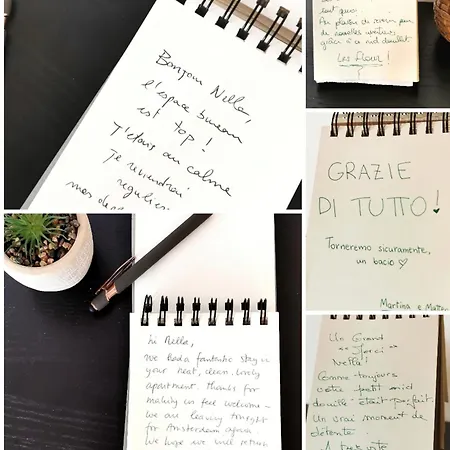 Bonjour Nella,
l'espace bureau
est top !
J'étais au calme
Je reviendrai
tout quoi.
Au plaisir de revenir pour
de nouvelles aventures
grâce à ce nid douillet
Les Flour !
GRAZIE
DI TUTTO!
Torneremo sicuramente,
un bacio ♡
Martina e Matteo
hi Nella,
We had a fantastic stay in
your neat, clean, lovely
apartment. thanks for
making us feel welcome -
we are leaving tonight
for Amsterdam again
We hope we will return
Un Grand
Merci
Nella !
Comme toujours
votre petit nid
douillet était parfait.
Un vrai moment de
détente.